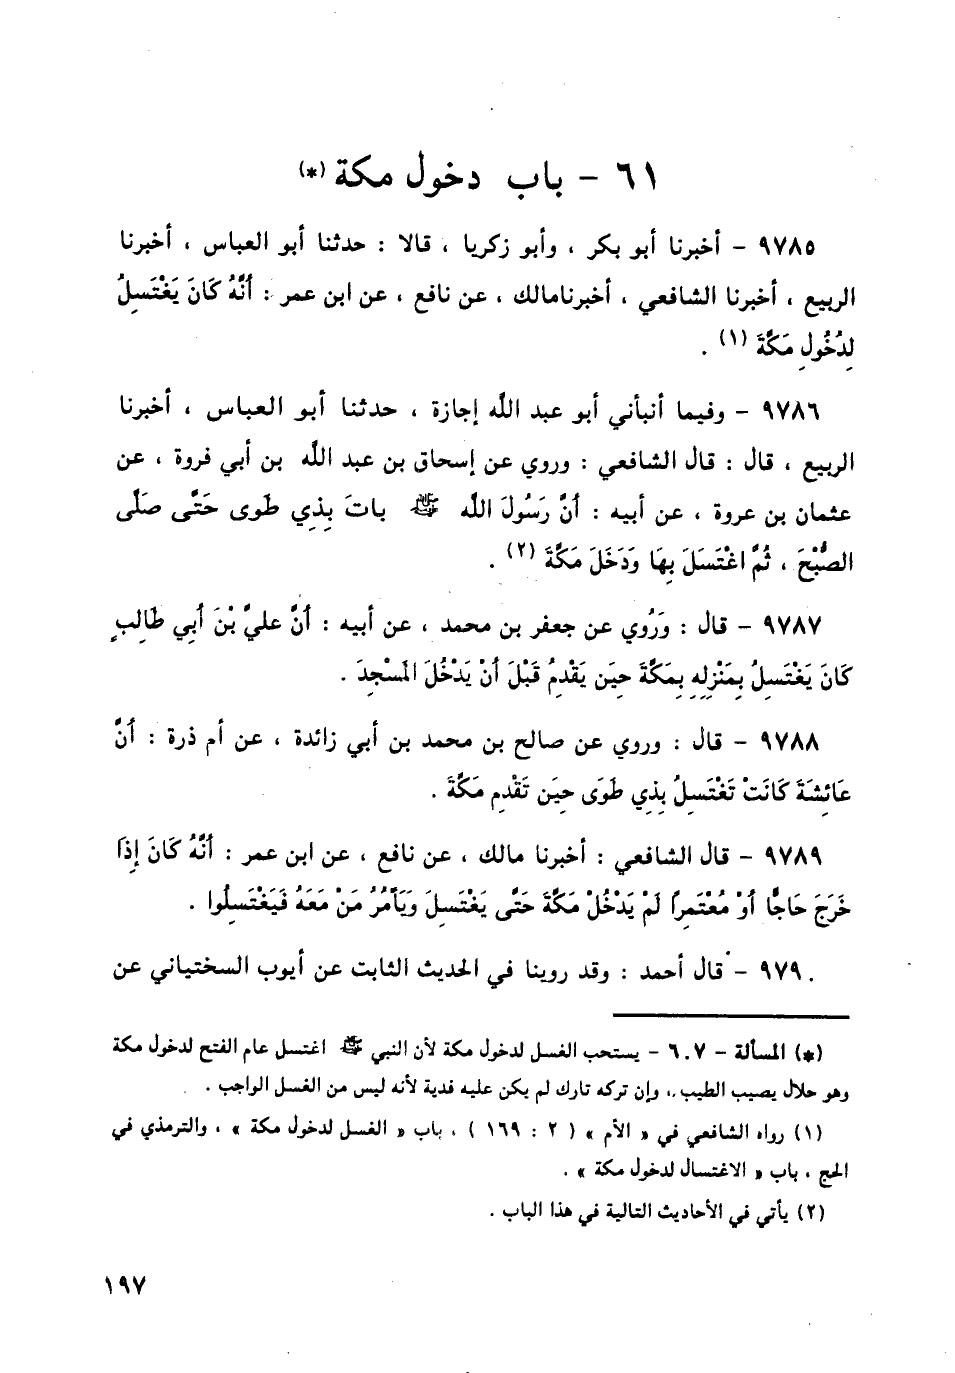 ٦١ - باب دخول مكة (*)
٩٧٨٥ - أخبرنا أبو بكر ، وأبو زكريا ، قالا : حدثنا أبو العباس ، أخبرنا
الربيع ، أخبرنا الشافعي ، أخبرنامالك ، عن نافع ، عن ابن عمر : أَنَّهُ كَانَ يَغْتَسِلُ
لِدُخُولِ مَكَّةَ (١) .
٩٧٨٦ - وفيما أنبأني أبو عبد الله إجازة ، حدثنا أبو العباس ، أخبرنا
الربيع ، قال : قال الشافعي : وروي عن إسحاق بن عبد الله بن أبي فروة ، عن
عثمان بن عروة ، عن أبيه : أَنَّ رَسُولَ الله ﷺ باتَ بِذِي طَوى حَتَّى صَلَّى
الصُّبْحَ ، ثُمَّ اغْتَسَلَ بِهَا وَدَخَلَ مَكَّةَ (٢) .
٩٧٨٧ - قال : وَرُوي عن جعفر بن محمد ، عن أبيه : أَنَّ عليَّ بْنَ أَبِي طَالِبٍ
كَانَ يَغْتَسِلُ بِمَنْزِلِهِ بِمَكَّةَ حِيَن يَقْدِمُ قَبْلَ أَنْ يَدْخُلَ الَمسْجِدَ .
٩٧٨٨ - قال : وروي عن صالح بن محمد بن أبي زائدة ، عن أم ذرة : أَنَّ
عَائِشَةَ كَانَتْ تَغْتَسِلُ بِذِي طَوَى حِيَن تَقْدِم مَكَّةَ .
٩٧٨٩ - قال الشافعي : أخبرنا مالك ، عن نافع ، عن ابن عمر : أَنَّهُ كَانَ إِذَا
خَرَجَ حَاجًّا أَوْ مُعْتَمِراً لَمْ يَدْخُلْ مَكَّةَ حَتَّى يَغْتَسِلَ وَيَأمُرُ مَنْ مَعَهُ فَيَغْتَسِلُوا .
٩٧٩٠ - قال أحمد : وقد روينا في الحديث الثابت عن أيوب السختياني عن
(*) المسألة - ٦٠٧ - يستحب الغسل لدخول مكة لأن النبي ﷺ اغتسل عام الفتح لدخول مكة
وهو حلال يصيب الطيب ،، وإن تركه تارك لم يكن عليه فدية لأنه ليس من الغسل الواجب .
(١) رواه الشافعي في « الأم » ( ٢ : ١٦٩ ) ، باب « الغسل لدخول مكة » ، والترمذي في
الحج ، باب « الاغتسال لدخول مكة » .
(٢) يأتي في الأحاديث التالية في هذا الباب .
١٩٧